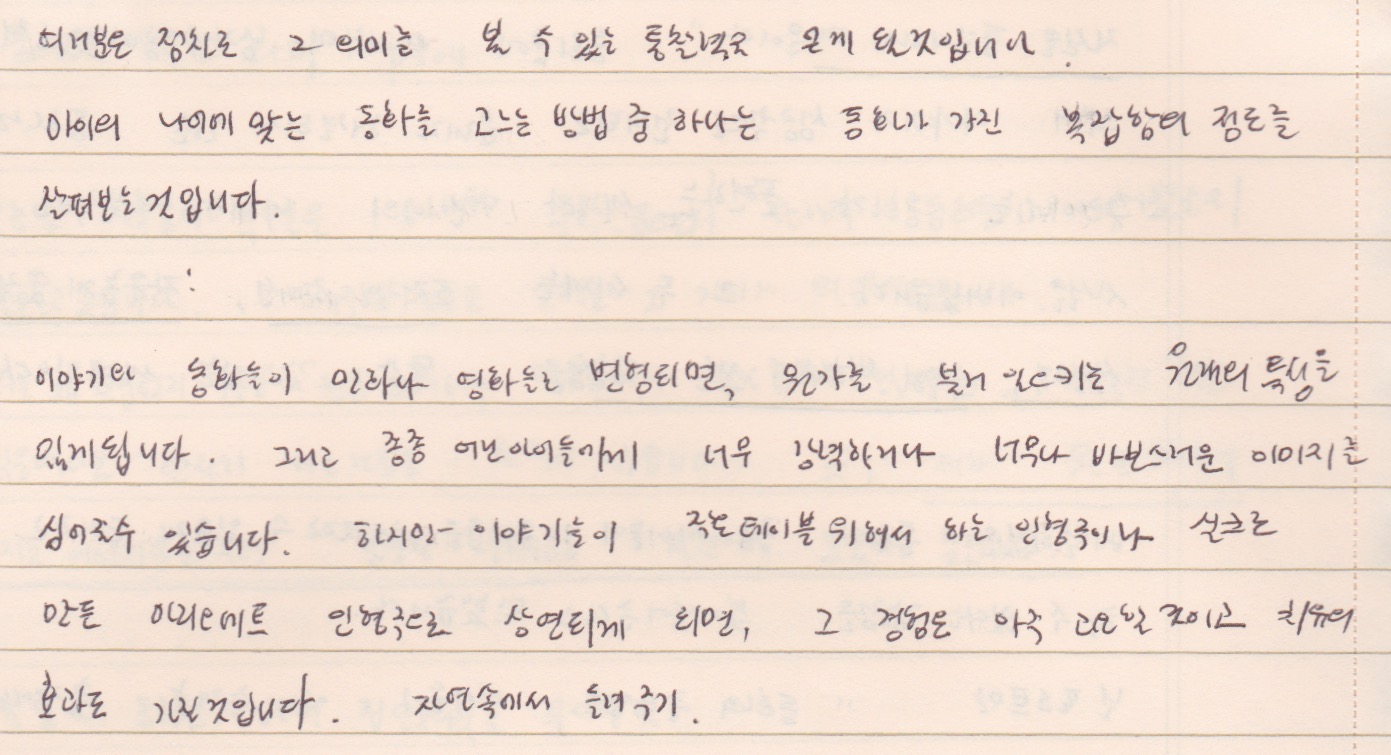 여러분은 점차로 그 의미를 볼 수 있는 통찰력을 얻게 될것입니다.
아이의 나이에 맞는 동화를 고르는 방법 중 하나는 동화가 가진 복잡함의 정도를
살펴보는것입니다.
:
이야기와 동화들이 만화나 영화로 변형되면, 무언가를 불러 일으키는 원래의 특성을
잃게됩니다. 그리고 종종 어린아이들에게 너무 강력하거나 너무나 바보스러운 이미지를
심어줄수 있습니다. 하지만 이야기들이 작은 테이블 위에서 하는 인형극이나 실크로
만든 마리오네트 인형극으로 상연되게 되면, 그 경험은 아주 고요할 것이고 치유의
효과도 가질것입니다. 자연속에서 들려주기.